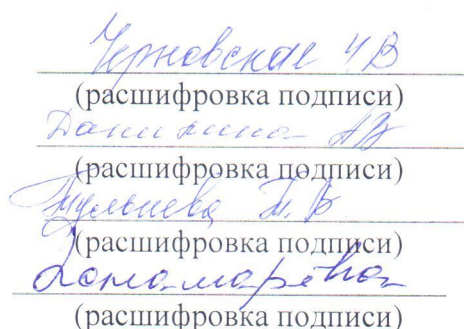 Черновская ЧВ
(расшифровка подписи)
Данилина АВ
(расшифровка подписи)
Т.В
(расшифровка подписи)
(расшифровка подписи)